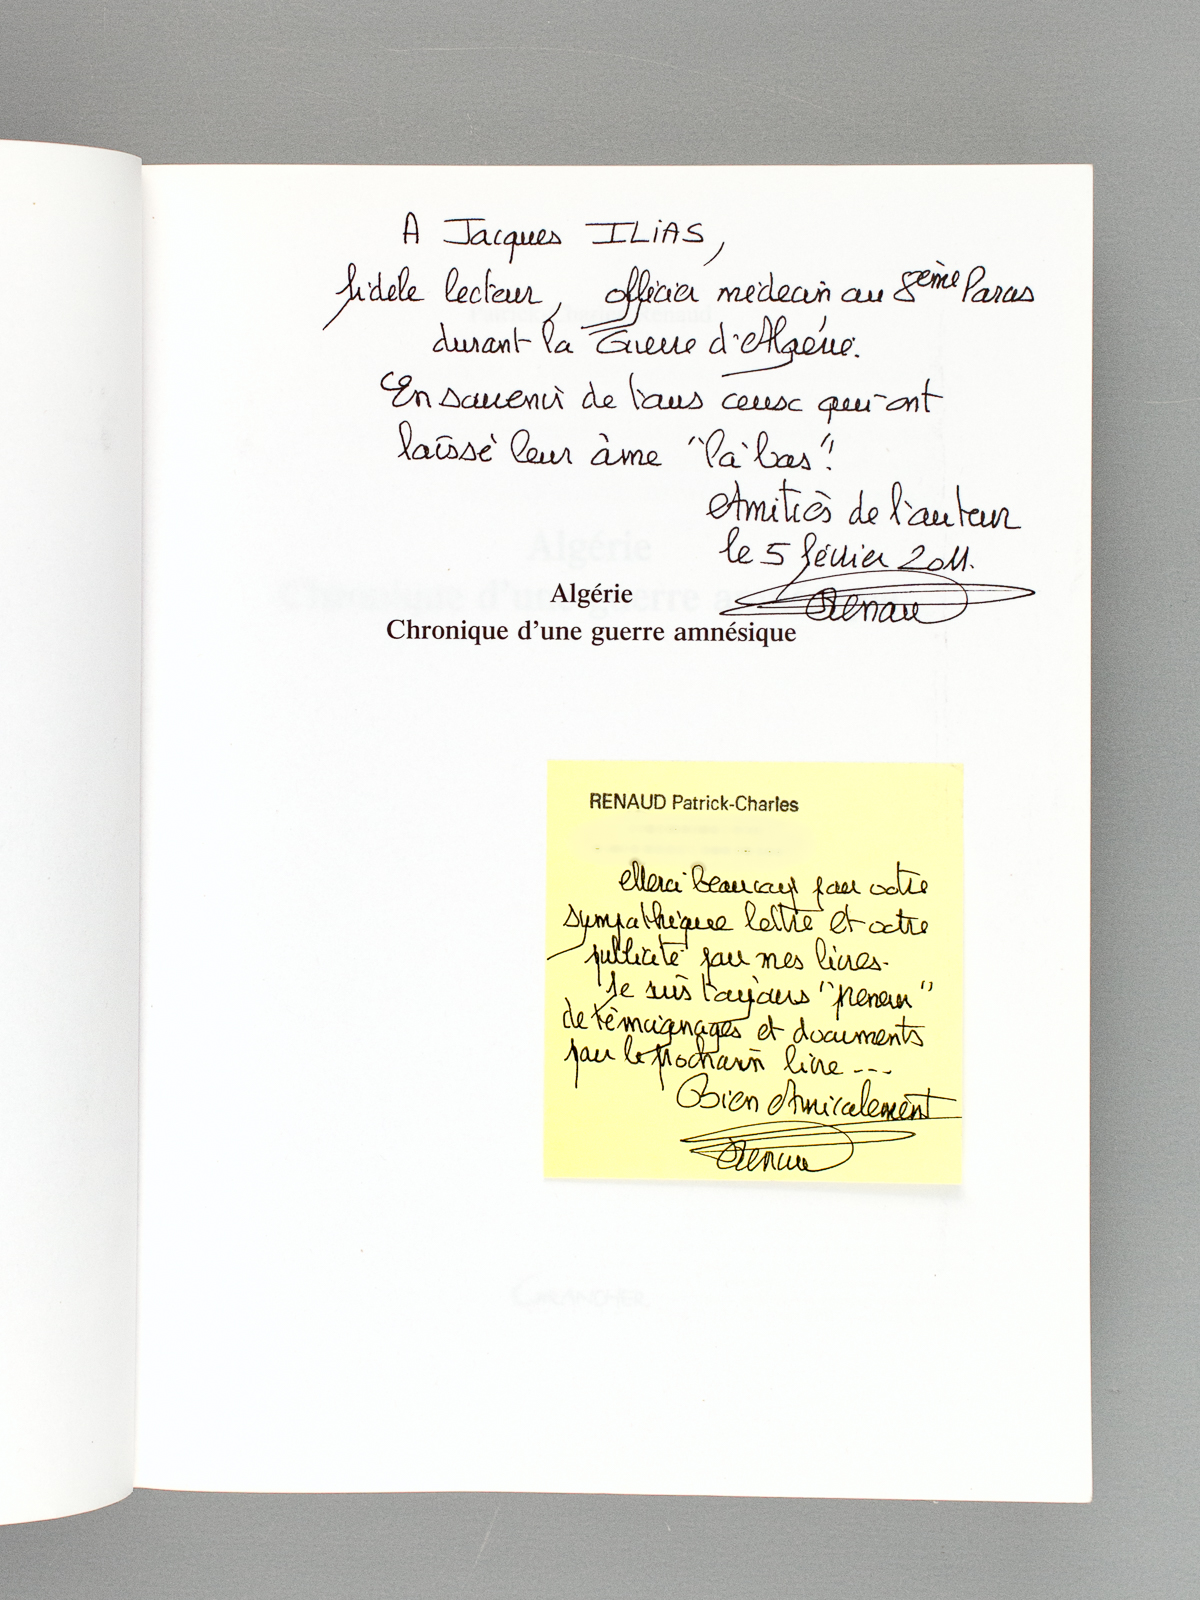 A Jacques ILIAS,
fidèle lecteur, officier médecin au 8ème Paras
durant la Guerre d'Algérie.
En souvenir de tous ceux qui ont
laissé leur âme "là-bas".
Amitiés de l'auteur
le 5 février 2011.
Renaud
Algérie
Chronique d'une guerre amnésique
RENAUD Patrick-Charles
Merci beaucoup pour votre
sympathique lettre et votre
publicité pour mes livres.
Je suis toujours "preneur"
de témoignages et documents
pour le prochain livre ---
Bien Amicalement
Renaud
GRANCHER